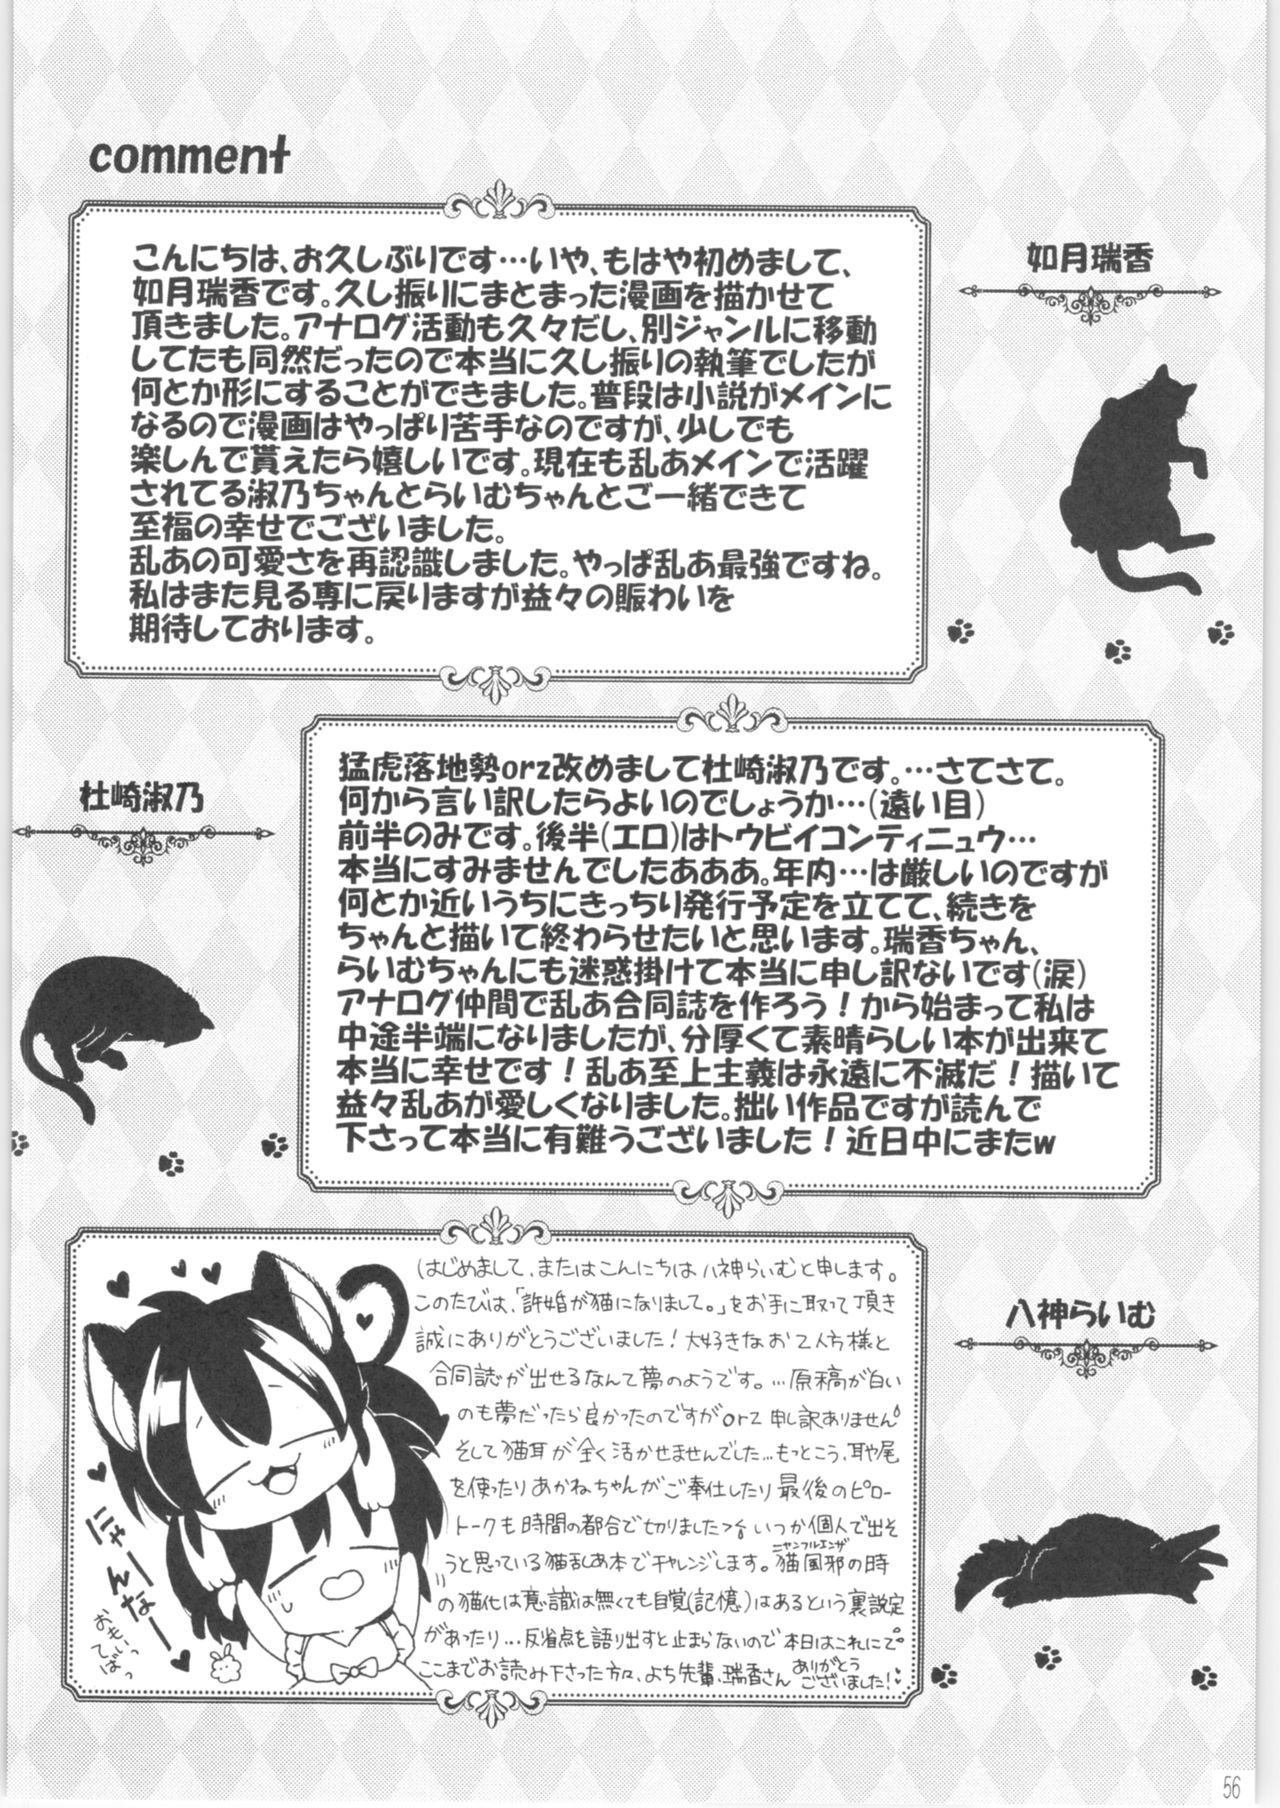 comment
如月瑞香
こんにちは、お久しぶりです…いや、もはや初めまして、
如月瑞香です。久し振りにまとまった漫画を描かせて
頂きました。アナログ活動も久々だし、別ジャンルに移動
してたも同然だったので本当に久し振りの執筆でしたが
何とか形にすることができました。普段は小説がメインに
なるので漫画はやっぱり苦手なのですが、少しでも
楽しんで貰えたら嬉しいです。現在も乱あメインで活躍
されてる淑乃ちゃんとらいむちゃんとご一緒できて
至福の幸せでございました。
乱あの可愛さを再認識しました。やっぱ乱あ最強ですね。
私はまた見る専に戻りますが益々の賑わいを
期待しております。
杜崎淑乃
猛虎落地勢orz改めまして杜崎淑乃です。…さてさて。
何から言い訳したらよいのでしょうか…(遠い目)
前半のみです。後半(エロ)はトウビイコンティニュウ…
本当にすみませんでしたあああ。年内…は厳しいのですが
何とか近いうちにきっちり発行予定を立てて、続きを
ちゃんと描いて終わらせたいと思います。瑞香ちゃん、
らいむちゃんにも迷惑掛けて本当に申し訳ないです(涙)
アナログ仲間で乱あ合同誌を作ろう!から始まって私は
中途半端になりましたが、分厚くて素晴らしい本が出来て
本当に幸せです!乱あ至上主義は永遠に不滅だ!描いて
益々乱あが愛しくなりました。拙い作品ですが読んで
下さって本当に有難うございました!近日中にまたw
八神らいむ
はじめまして、またはこんにちは八神らいむと申します。
このたびは、「許婚が猫になりまして。」をお手に取って頂き
誠にありがとうございました!大好きなお二人方様と
合同誌が出せるなんて夢のようです。…原稿が白い
のも夢だったら良かったのですがorz申し訳ありません
そして猫耳が全く活かせませんでした…もっとこう、耳や尾
を使ったりあかねちゃんがご奉仕したり最後のピロー
トークも時間の都合で切りました いつか個人で出そ
うと思っている猫乱あ本でチャレンジします。猫風邪の時
ニャンフルエンザ
の猫化は意識は無くても自覚(記憶)はあるという裏設定
があったり…反省点を語り出すと止まらないので本日はこれにて
ここまでお読み下さった方々、よち先輩、瑞香さん ありがとう
ございました!
にゃーんなー
おもいっ
てばっ
56